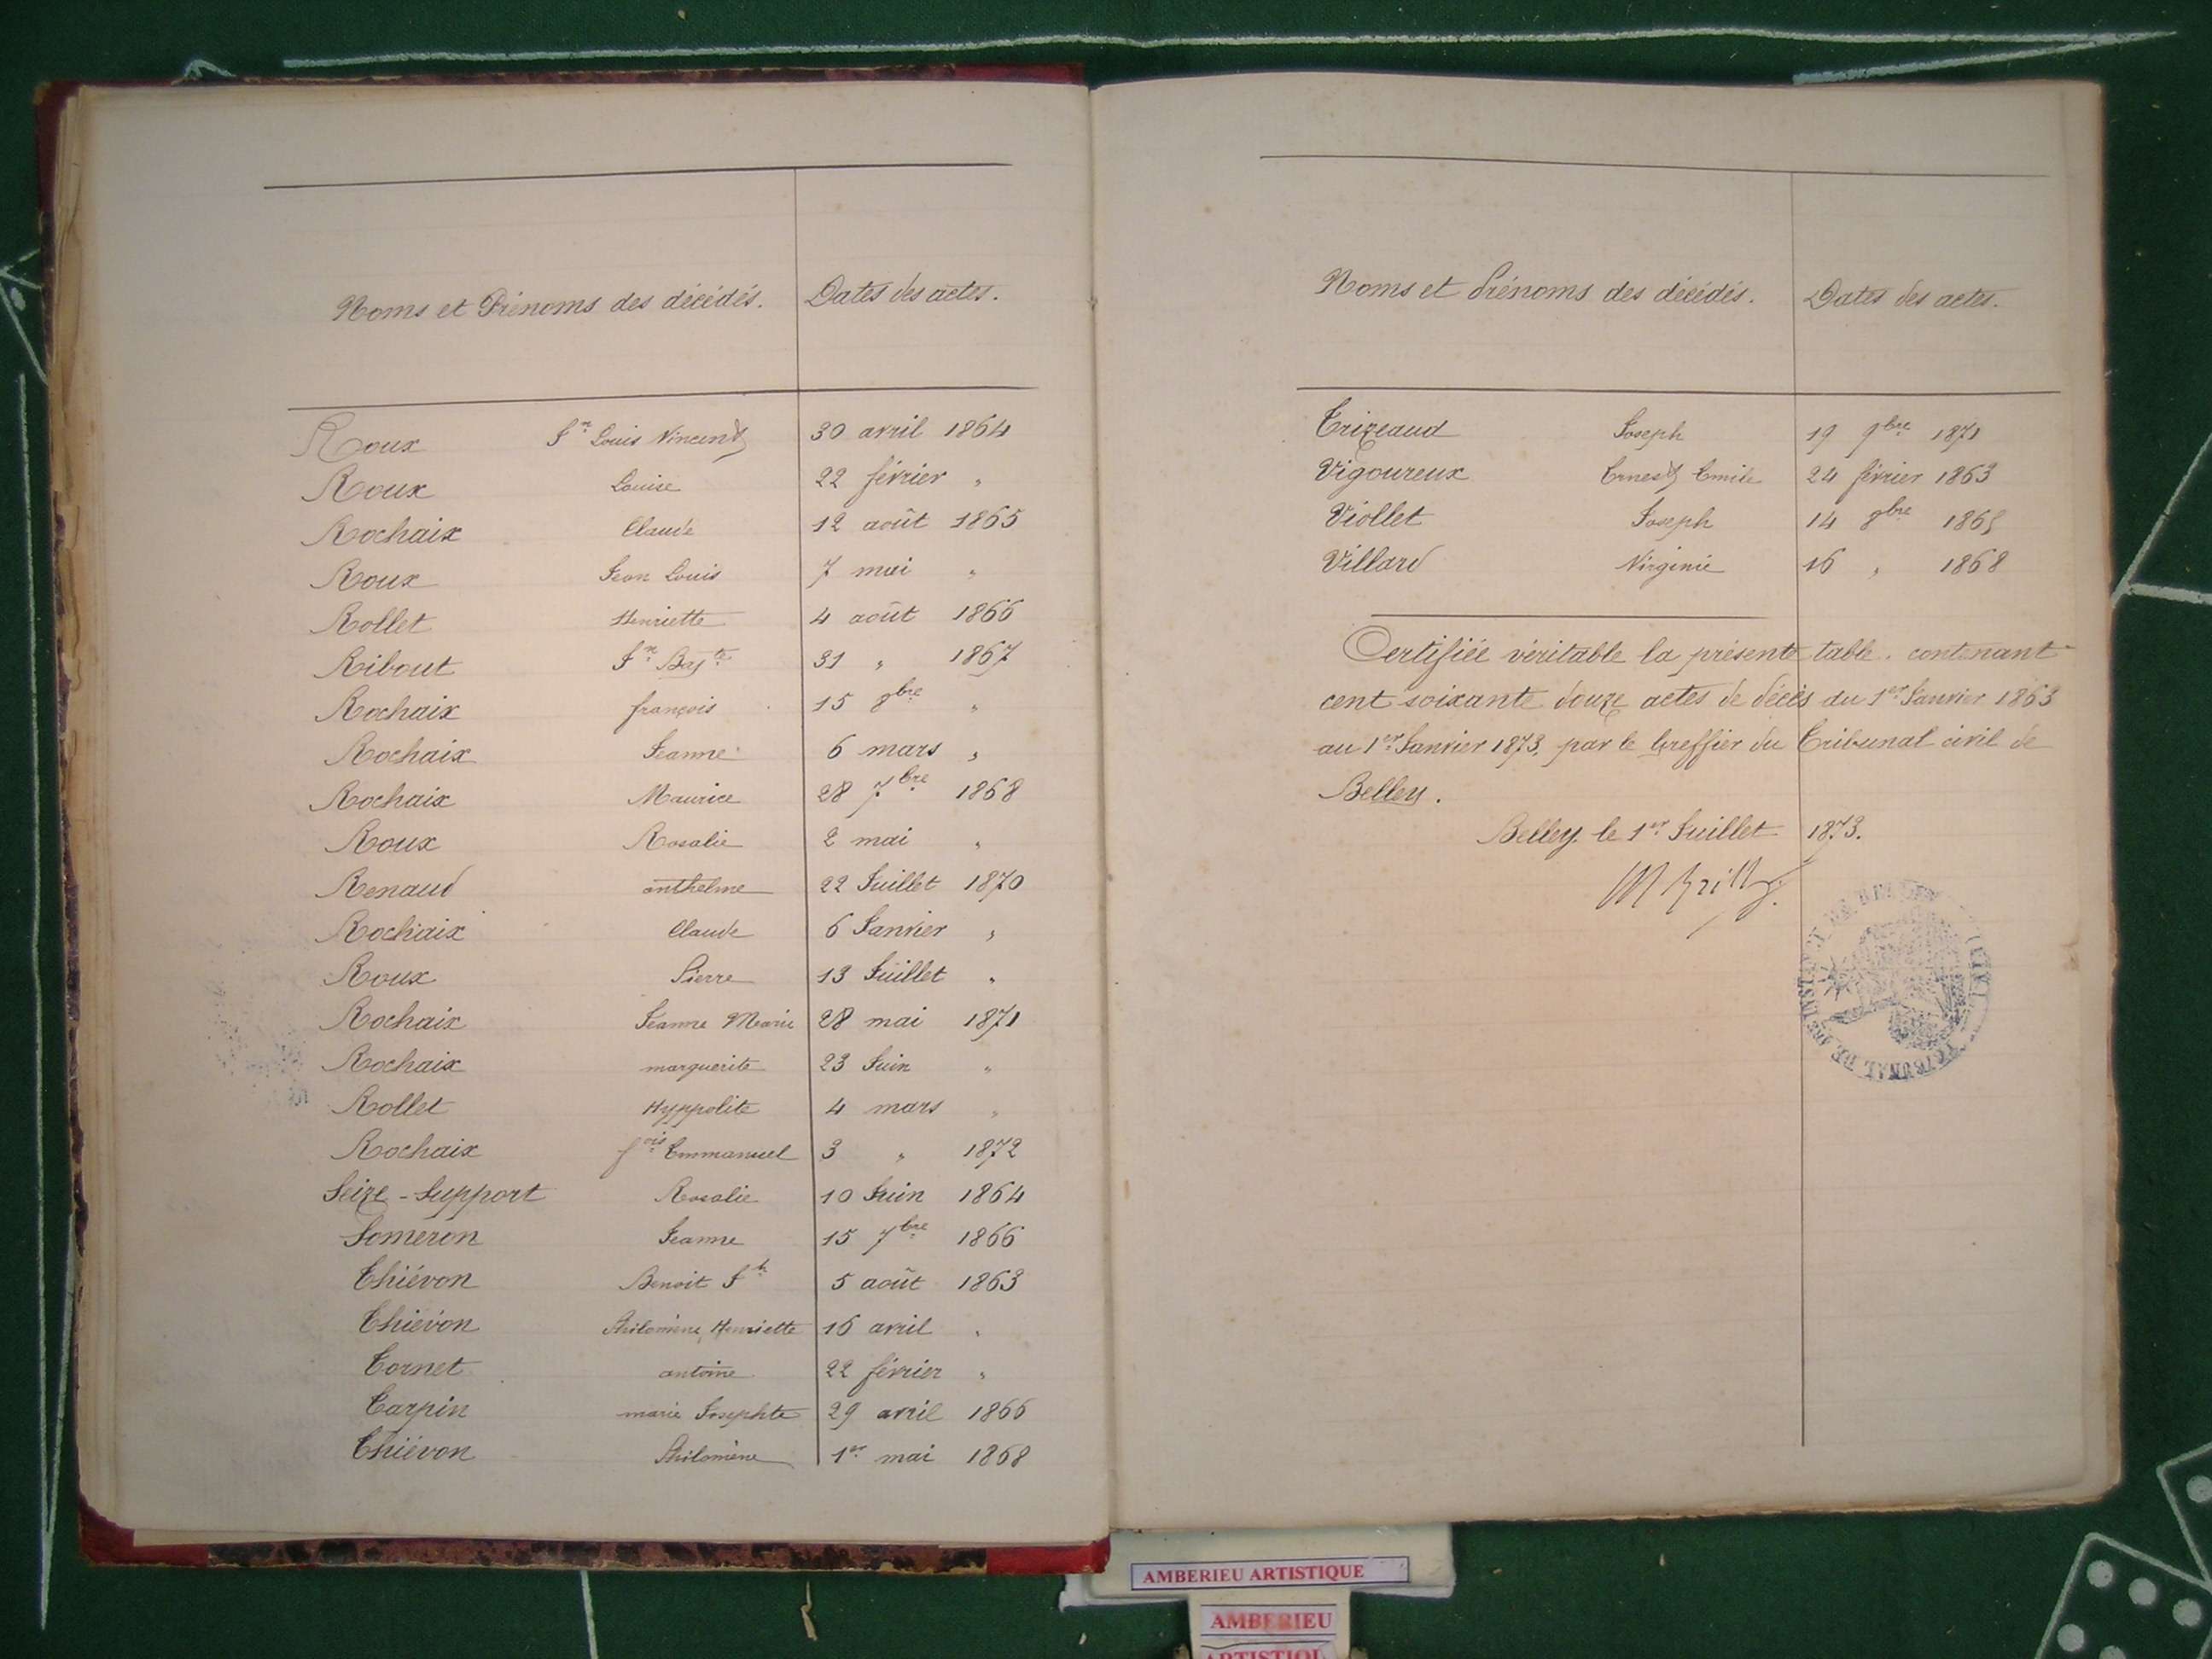 Noms et Prénoms des décédés. Dates des actes.
Roux Jn Louis Vincent 30 avril 1864
Roux Louise 22 février "
Rochaix Claude 12 août 1865
Roux Jean Louis 7 mai "
Rollet Henriette 4 août 1866
Ribout Jn Bapte 31 " 1867
Rochaix françois 15 8bre "
Rochaix Jeanne 6 mars "
Rochaix Maurice 28 7bre 1868
Roux Rosalie 2 mai "
Renaud anthelme 22 Juillet 1870
Rochaix Claude 6 Janvier "
Roux Pierre 13 Juillet "
Rochaix Jeanne Marie 28 mai 1871
Rochaix marguerite 23 Juin "
Rollet Hyppolite 4 mars "
Rochaix fois Emmanuel 3 " 1872
Seize-Support Rosalie 10 Juin 1864
Someron Jeanne 15 7bre 1866
Thiévon Benoit Jh 5 août 1863
Thiévon Philomène Henriette 16 avril "
Tornet antoine 22 février "
Tarpin marie Josephte 29 avril 1866
Thiévon Philomène 1er mai 1868
Noms et Prénoms des décédés. Dates des actes.
Trizeaud Joseph 19 9bre 1871
Vigoureux Ernest Emile 24 février 1863
Viollet Joseph 14 8bre 1865
Villard Virginie 16 " 1868
Certifiée véritable la présente table. contenant
cent soixante douze actes de décès du 1er Janvier 1863
au 1er Janvier 1873, par le Greffier du Tribunal civil de
Belley.
Belley. le 1er Juillet 1873.
TRIBUNAL DE 1RE INSTANCE DE BELLEY (AIN)
AMBERIEU ARTISTIQUE
AMBERIEU